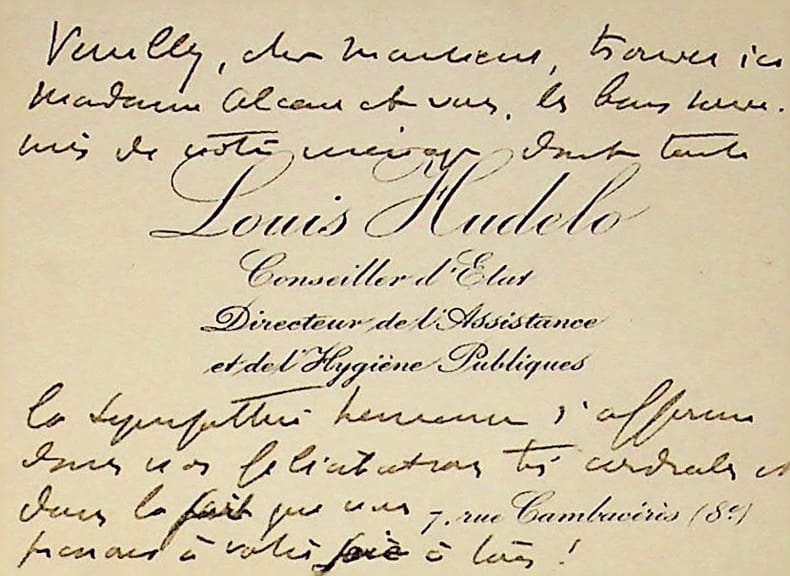 Veuillez, cher Monsieur, trouver ici
Madame Alcan et vous, les bons souve-
nirs de notre ménage dont toute
Louis Hudelo
Conseiller d'Etat
Directeur de l'Assistance
et de l'Hygiène Publiques
la sympathie heureuse s'affirme
dans nos félicitations très cordiales et
dans la part que nous
7, rue Cambacérès (8e)
prenons à votre joie à tous !